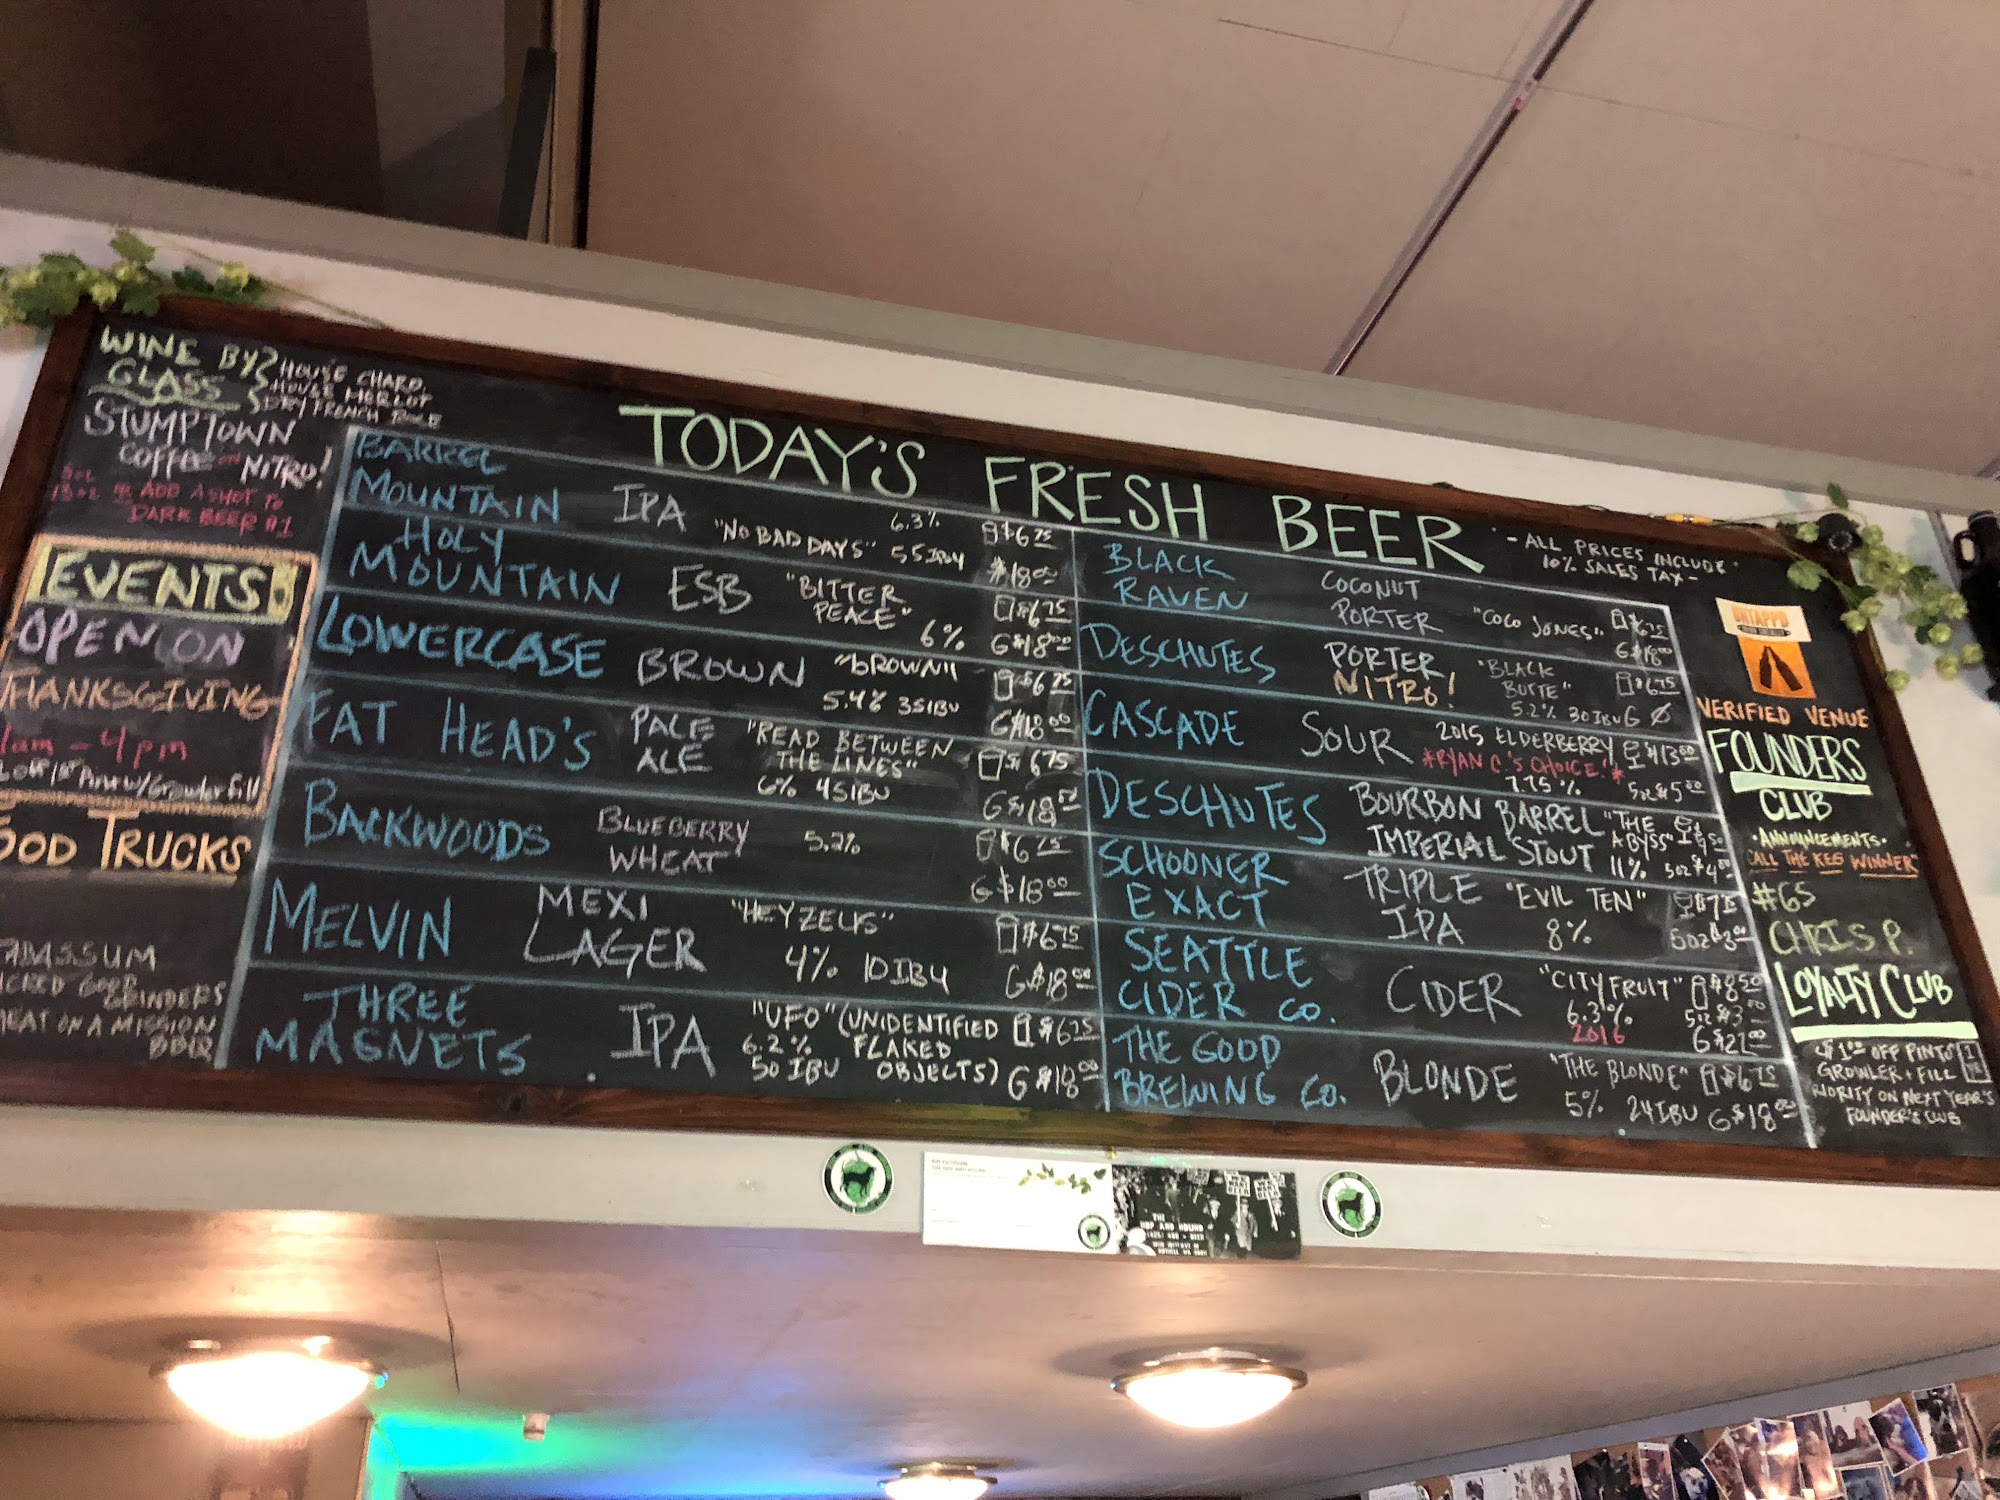 WINE BY GLASS
HOUSE CHARD.
HOUSE MERLOT
DRY FRENCH ROSE
STUMPTOWN
COFFEE ON NITRO!
ADD A SHOT TO
DARK BEER $1
EVENTS
OPEN ON
THANKSGIVING
1am - 4pm
1st Pint w/Growler fill
FOOD TRUCKS
TABASSUM
GRINDERS
MEAT ON A MISSION
BBQ
TODAY'S FRESH BEER
- ALL PRICES INCLUDE
10% SALES TAX -
BARREL MOUNTAIN IPA "NO BAD DAYS" 6.3% 55 IBU $6.75 $18.00
HOLY MOUNTAIN ESB "BITTER PEACE" 6% $6.75 G $18.00
LOWERCASE BROWN "BROWN" 5.4% 35 IBU $6.75 G $18.00
FAT HEAD'S PALE ALE "READ BETWEEN THE LINES" 6% 45 IBU $6.75 G $18.00
BACKWOODS BLUEBERRY WHEAT 5.2% $6.75 G $18.00
MELVIN MEXI LAGER "HEY ZEUS" 4% 10 IBU $6.75 G $18.00
THREE MAGNETS IPA "UFO" (UNIDENTIFIED FLAKED OBJECTS) 6.2% 50 IBU $6.75 G $18.00
BLACK RAVEN COCONUT PORTER "COCO JONES" $6.75 G $18.00
DESCHUTES PORTER NITRO! "BLACK BUTTE" 5.2% 30 IBU $6.75 G Ø
CASCADE SOUR 2015 ELDERBERRY *RYAN C.'S CHOICE!* 7.75% $13.00 5oz $5.00
DESCHUTES BOURBON BARREL IMPERIAL STOUT "THE ABYSS" 11% 5oz $4.00
SCHOONER EXACT TRIPLE IPA "EVIL TEN" 8% $7.75 5oz $3.00
SEATTLE CIDER CO. CIDER "CITY FRUIT" 6.3% 2016 $8.50 5oz $3.00 G $22.00
THE GOOD BREWING CO. BLONDE "THE BLONDE" 5% 24 IBU $6.75 G $18.00
UNTAPPD
VERIFIED VENUE
FOUNDERS
CLUB
• ANNOUNCEMENTS •
CALL THE KEG WINNER
#65
CHRIS P.
LOYALTY CLUB
$1.00 OFF PINTS
GROWLER + FILL
PRIORITY ON NEXT YEAR'S
FOUNDER'S CLUB
THE
HOP AND HOUND